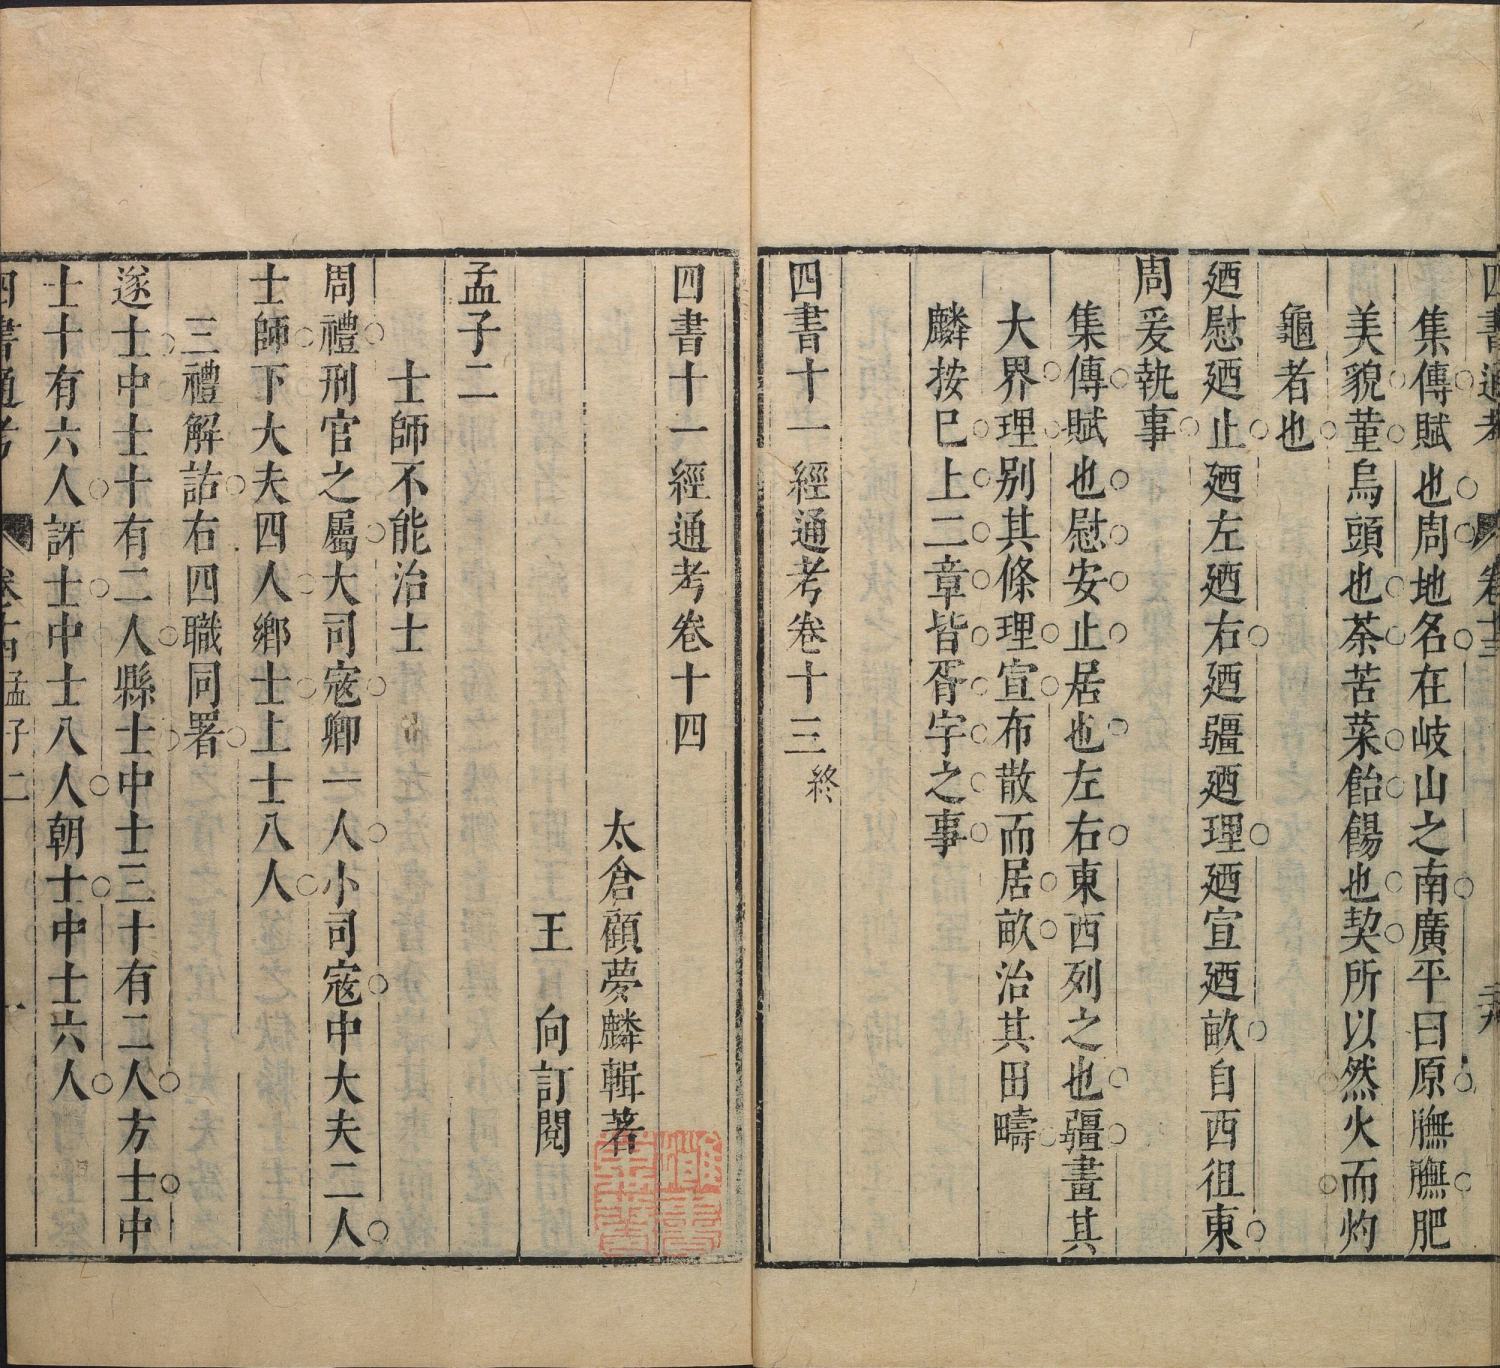 四書通考 卷十三
集傳賦也周地名在岐山之南廣平曰原膴膴肥
美貌菫烏頭也荼苦菜飴餳也契所以然火而灼
龜者也
廼慰廼止廼左廼右廼疆廼理廼宣廼畝自西徂東
周爰執事
集傳賦也慰安止居也左右東西列之也疆畫其
大界理别其條理宣布散而居畝治其田疇
麟按巳上二章皆胥宇之事
四書十一經通考卷十三終
四書十一經通考卷十四
太倉顧夢麟輯著
王 向訂閱
孟子二
士師不能治士
周禮刑官之屬大司寇卿一人小司寇中大夫二人
士師下大夫四人鄉士上士八人
三禮解詁右四職同署
遂士中士十有二人縣士中士三十有二人方士中
士十有六人訝士中士八人朝士中士六人
四書通考 卷十四孟子二 一